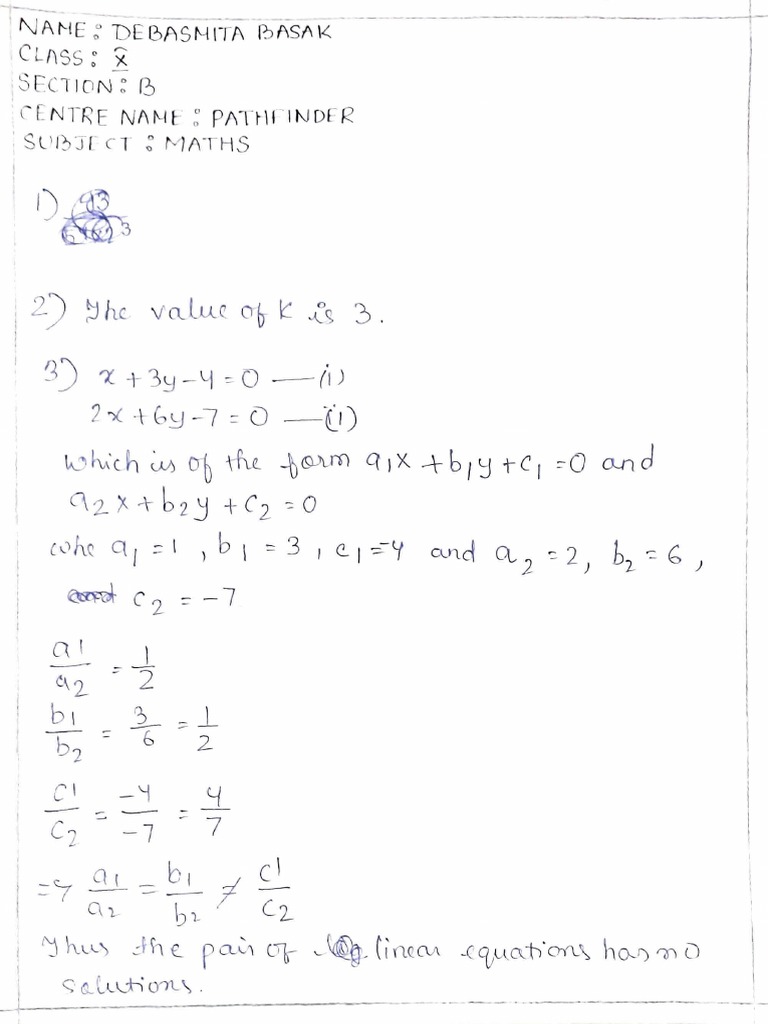 NAME: DEBASMITA BASAK
CLASS: X
SECTION: B
CENTRE NAME: PATHFINDER
SUBJECT: MATHS
1)
2) The value of K is 3.
3) x + 3y - 4 = 0 —(i)
2x + 6y - 7 = 0 —(ii)
which is of the form a₁x + b₁y + c₁ = 0 and
a₂x + b₂y + c₂ = 0
whe a₁ = 1, b₁ = 3, c₁ = -4 and a₂ = 2, b₂ = 6,
c₂ = -7
a₁/a₂ = 1/2
b₁/b₂ = 3/6 = 1/2
c₁/c₂ = -4/-7 = 4/7
=> a₁/a₂ = b₁/b₂ ≠ c₁/c₂
Thus the pair of linear equations has no
solutions.